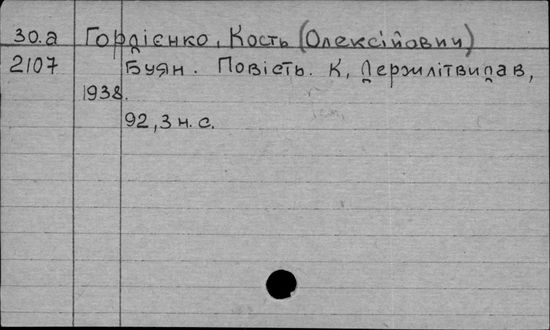 30.а Гордієнко, Кость (Олексійович)
2107 Буян. Повість. К, Держлітвидав,
1938.
92, 3 н. с.